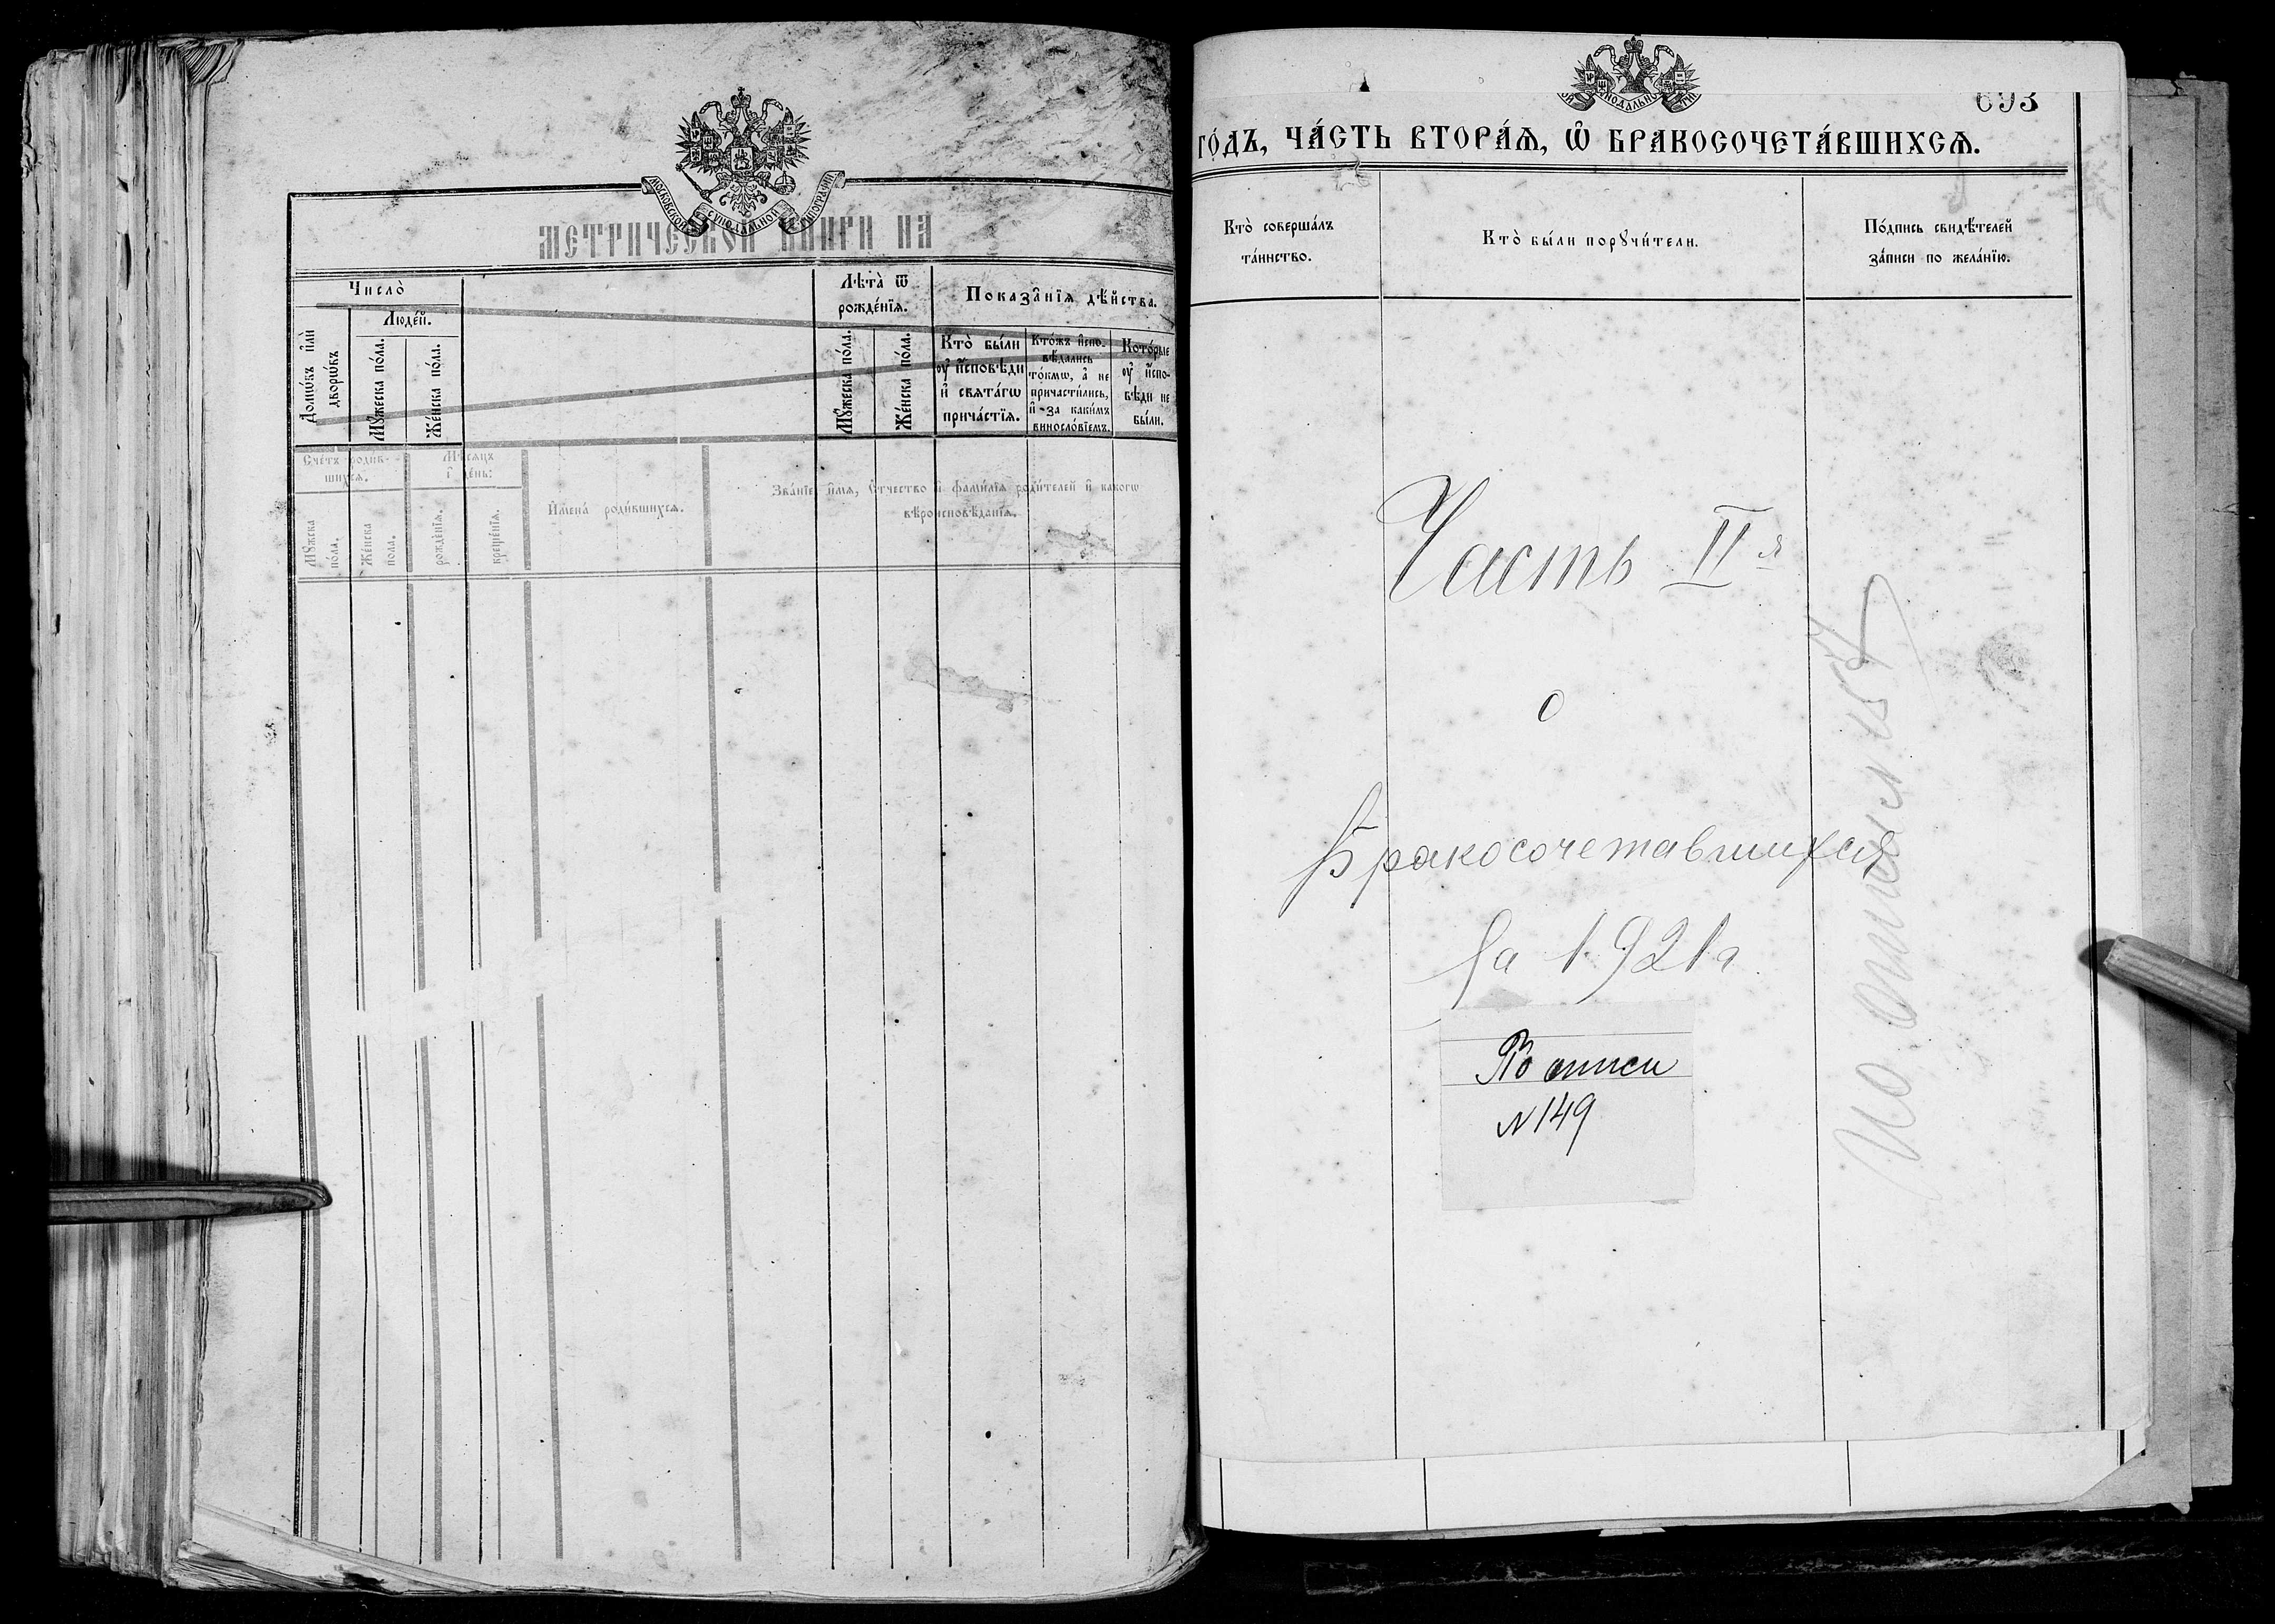 МОСКОВСКОЙ СУНОДАЛЬНОЙ ТИПОГРАФІИ
МЕТРИЧЕСКОЙ КНИГИ НА
Число̀
Домѡ́въ и҆лѝ дворѡ́въ
Люде́й.
Мꙋ́жеска по́ла.
Же́нска по́ла.
Лѣ́та ѿ рожде́нїѧ.
Мꙋ́жеска по́ла.
Же́нска по́ла.
Показа̑нїѧ дѣ́йства.
Кто̀ бы́ли
ᲂу҆ и҆́сповѣди
и҆ свѧта́гѡ
прича́стїѧ.
Кто́жъ и҆спо-
вѣ́дались
то́кмѡ, а҆ не
причасти́лись,
и҆ за каки́мъ
винослѡ́вїемъ.
Кото́рые
ᲂу҆ и҆́спо-
вѣди не
бы́ли.
Сче́тъ роди́в-
шихсѧ.
Мꙋ́жеска по́ла.
Же́нска по́ла.
Мѣ́сѧцъ
и҆ де́нь:
рожде́нїѧ.
креще́нїѧ.
И҆мена̀ роди́вшихсѧ.
Зва́нїе, и҆́мѧ, ѻ҆́тчество и҆ фами́лїѧ роди́телей и҆ како́гѡ
вѣроисповѣ́данїѧ.
693
ГО́ДЪ, ЧА́СТЬ ВТОРА́Ѧ, Ѽ БРАКОСОЧЕТА́ВШИХСѦ.
Кто̀ соверша́лъ
та́инство.
Кто̀ бы́ли порꙋчи́тели.
По́дпись свидѣ́телей
за́писи по жела́нїю.
Часть II я
о
Бракосочетавшихся
За 1921 г
По описи
N 149
По описи